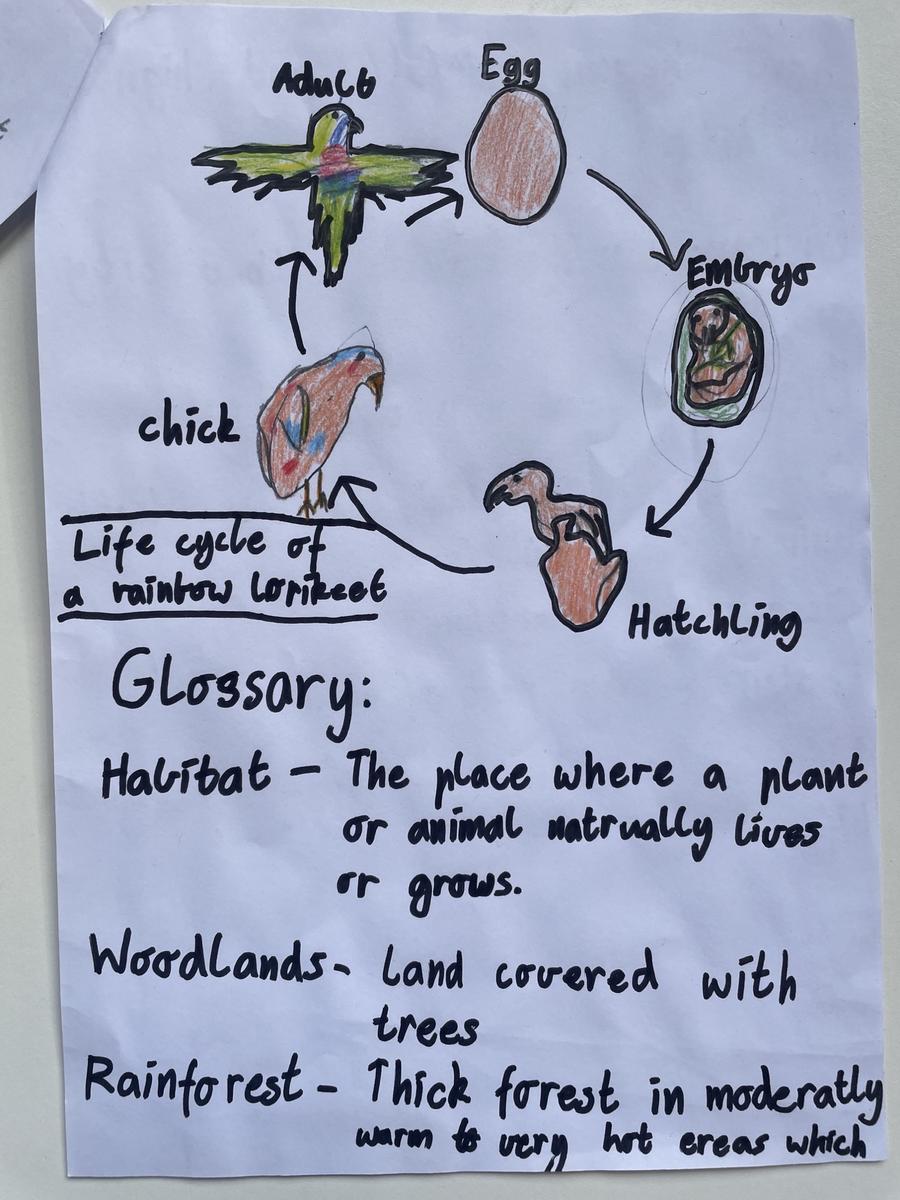 Adult
Egg
Embryo
chick
Hatchling
Life cycle of
a rainbow lorikeet
Glossary:
Habitat - The place where a plant
or animal natrually lives
or grows.
Woodlands - Land covered with
trees
Rainforest - Thick forest in moderatly
warm to very hot ereas which